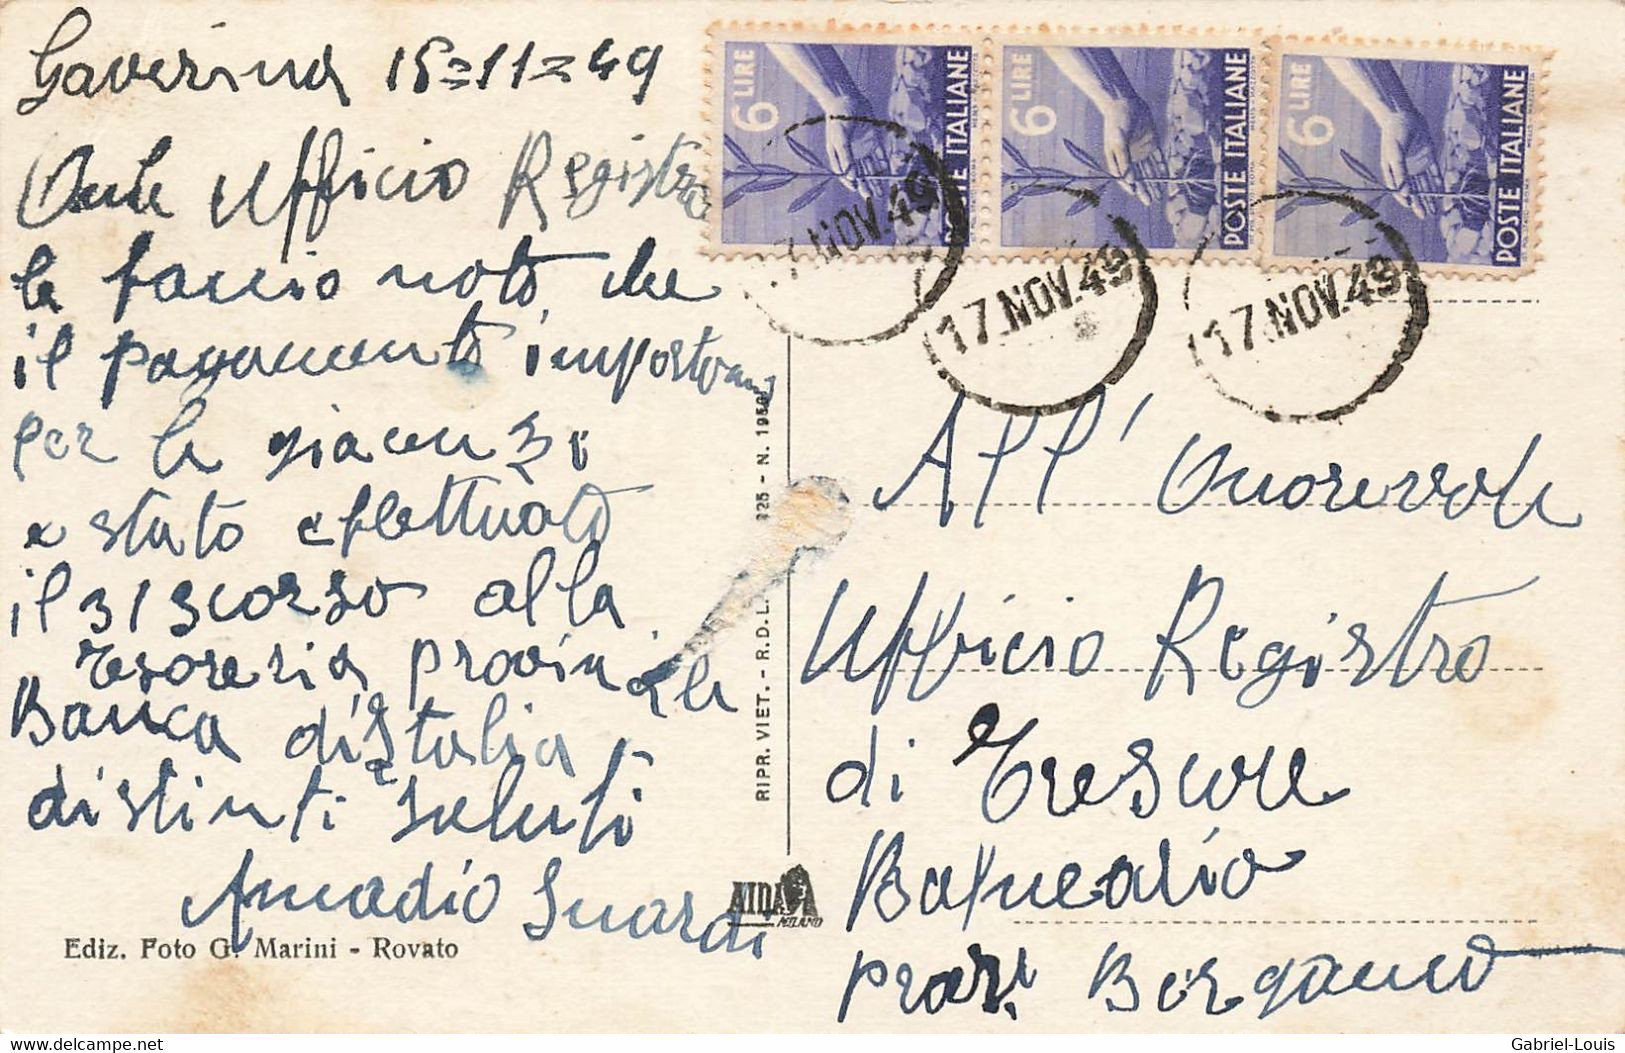 Gaverina 15=11=49
Onle Ufficio Registro
le faccio noto che
il pagamento import
per la giacenza
e stato effettuato
il 31 scorso alla
Tesoreria provinciale
Banca d'Italia
distinti saluti
Amadio Suardi
Ediz. Foto G. Marini - Rovato
RIPR. VIET. - R.D.L. 125 - N. 1950
MILANO
6 LIRE
POSTE ITALIANE
6 LIRE
POSTE ITALIANE
6 LIRE
POSTE ITALIANE
17.NOV.49
17.NOV.49
17.NOV.49
All' Onorevole
Ufficio Registro
di Trescore
Balneario
prov. Bergamo
www.delcampe.net
Gabriel-Louis